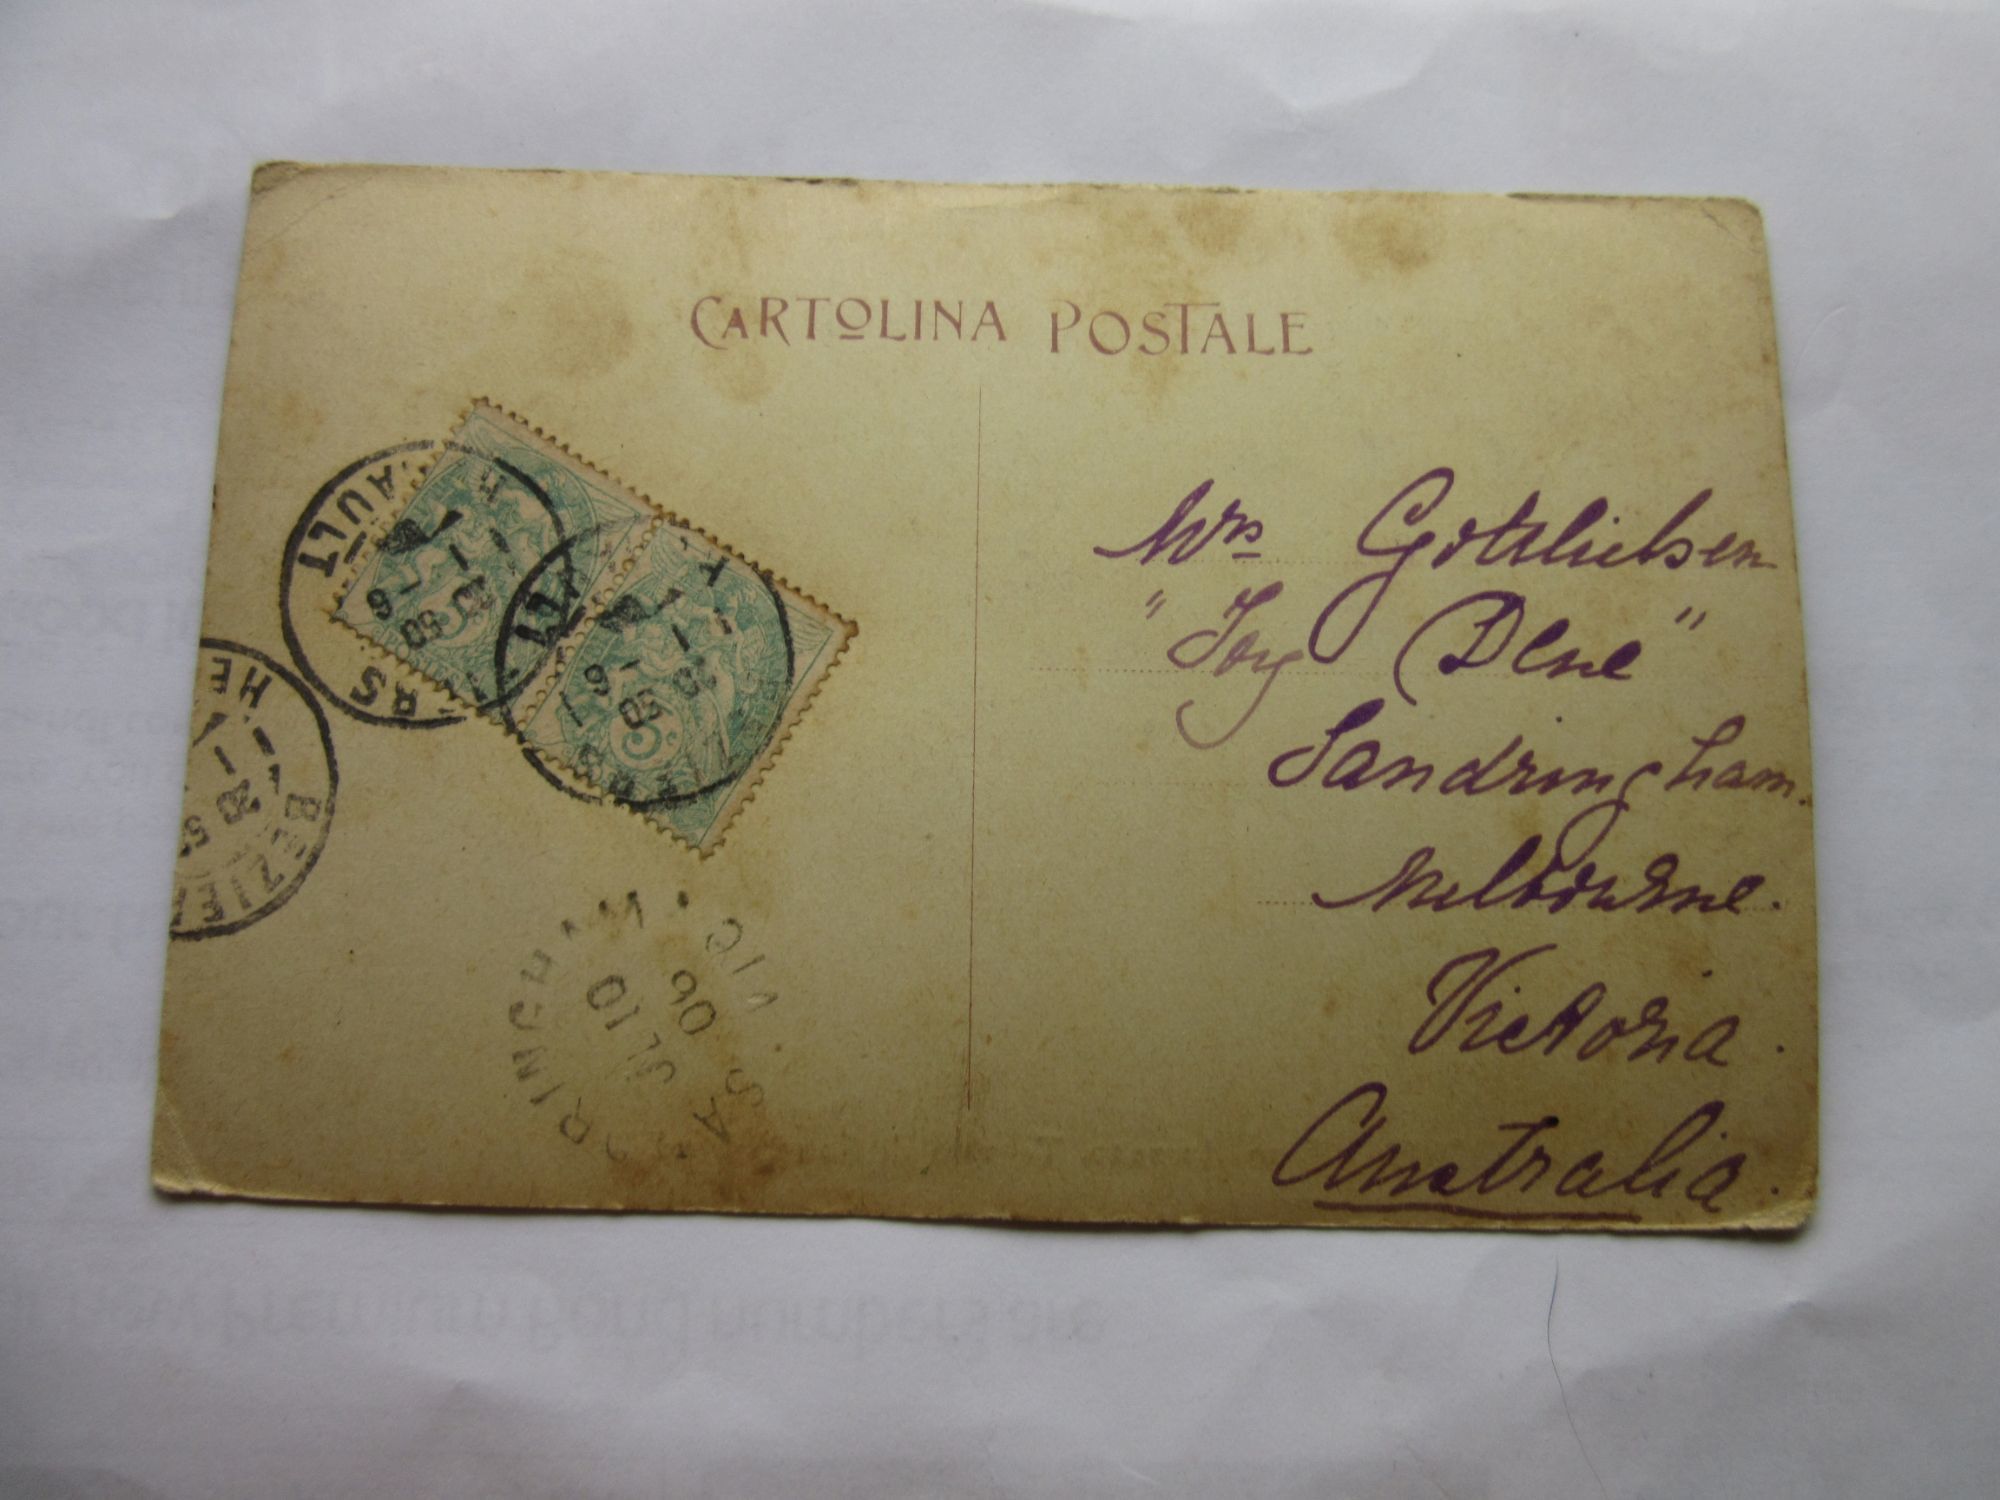 CARTOLINA POSTALE
Mrs Gottliebsen
" Dene "
Sandringham.
Melbourne.
Victoria.
Australia.
HERAULT
1 - 6
5
5
BEZIERS
HE
SANDRINGHAM
JL 10
06
VIC